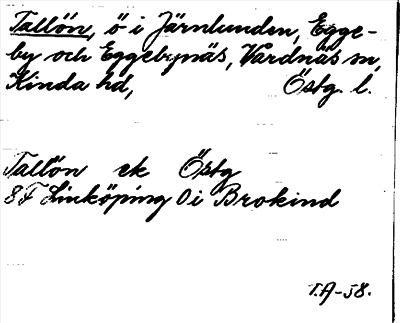 Tallön, ö i Järnlunden, Egge-
by och Eggebynäs, Vardnäs sn,
Kinda hd, Östg. l.
Tallön ek Östg
8F Linköping Ö i Brokind
T.A-58.